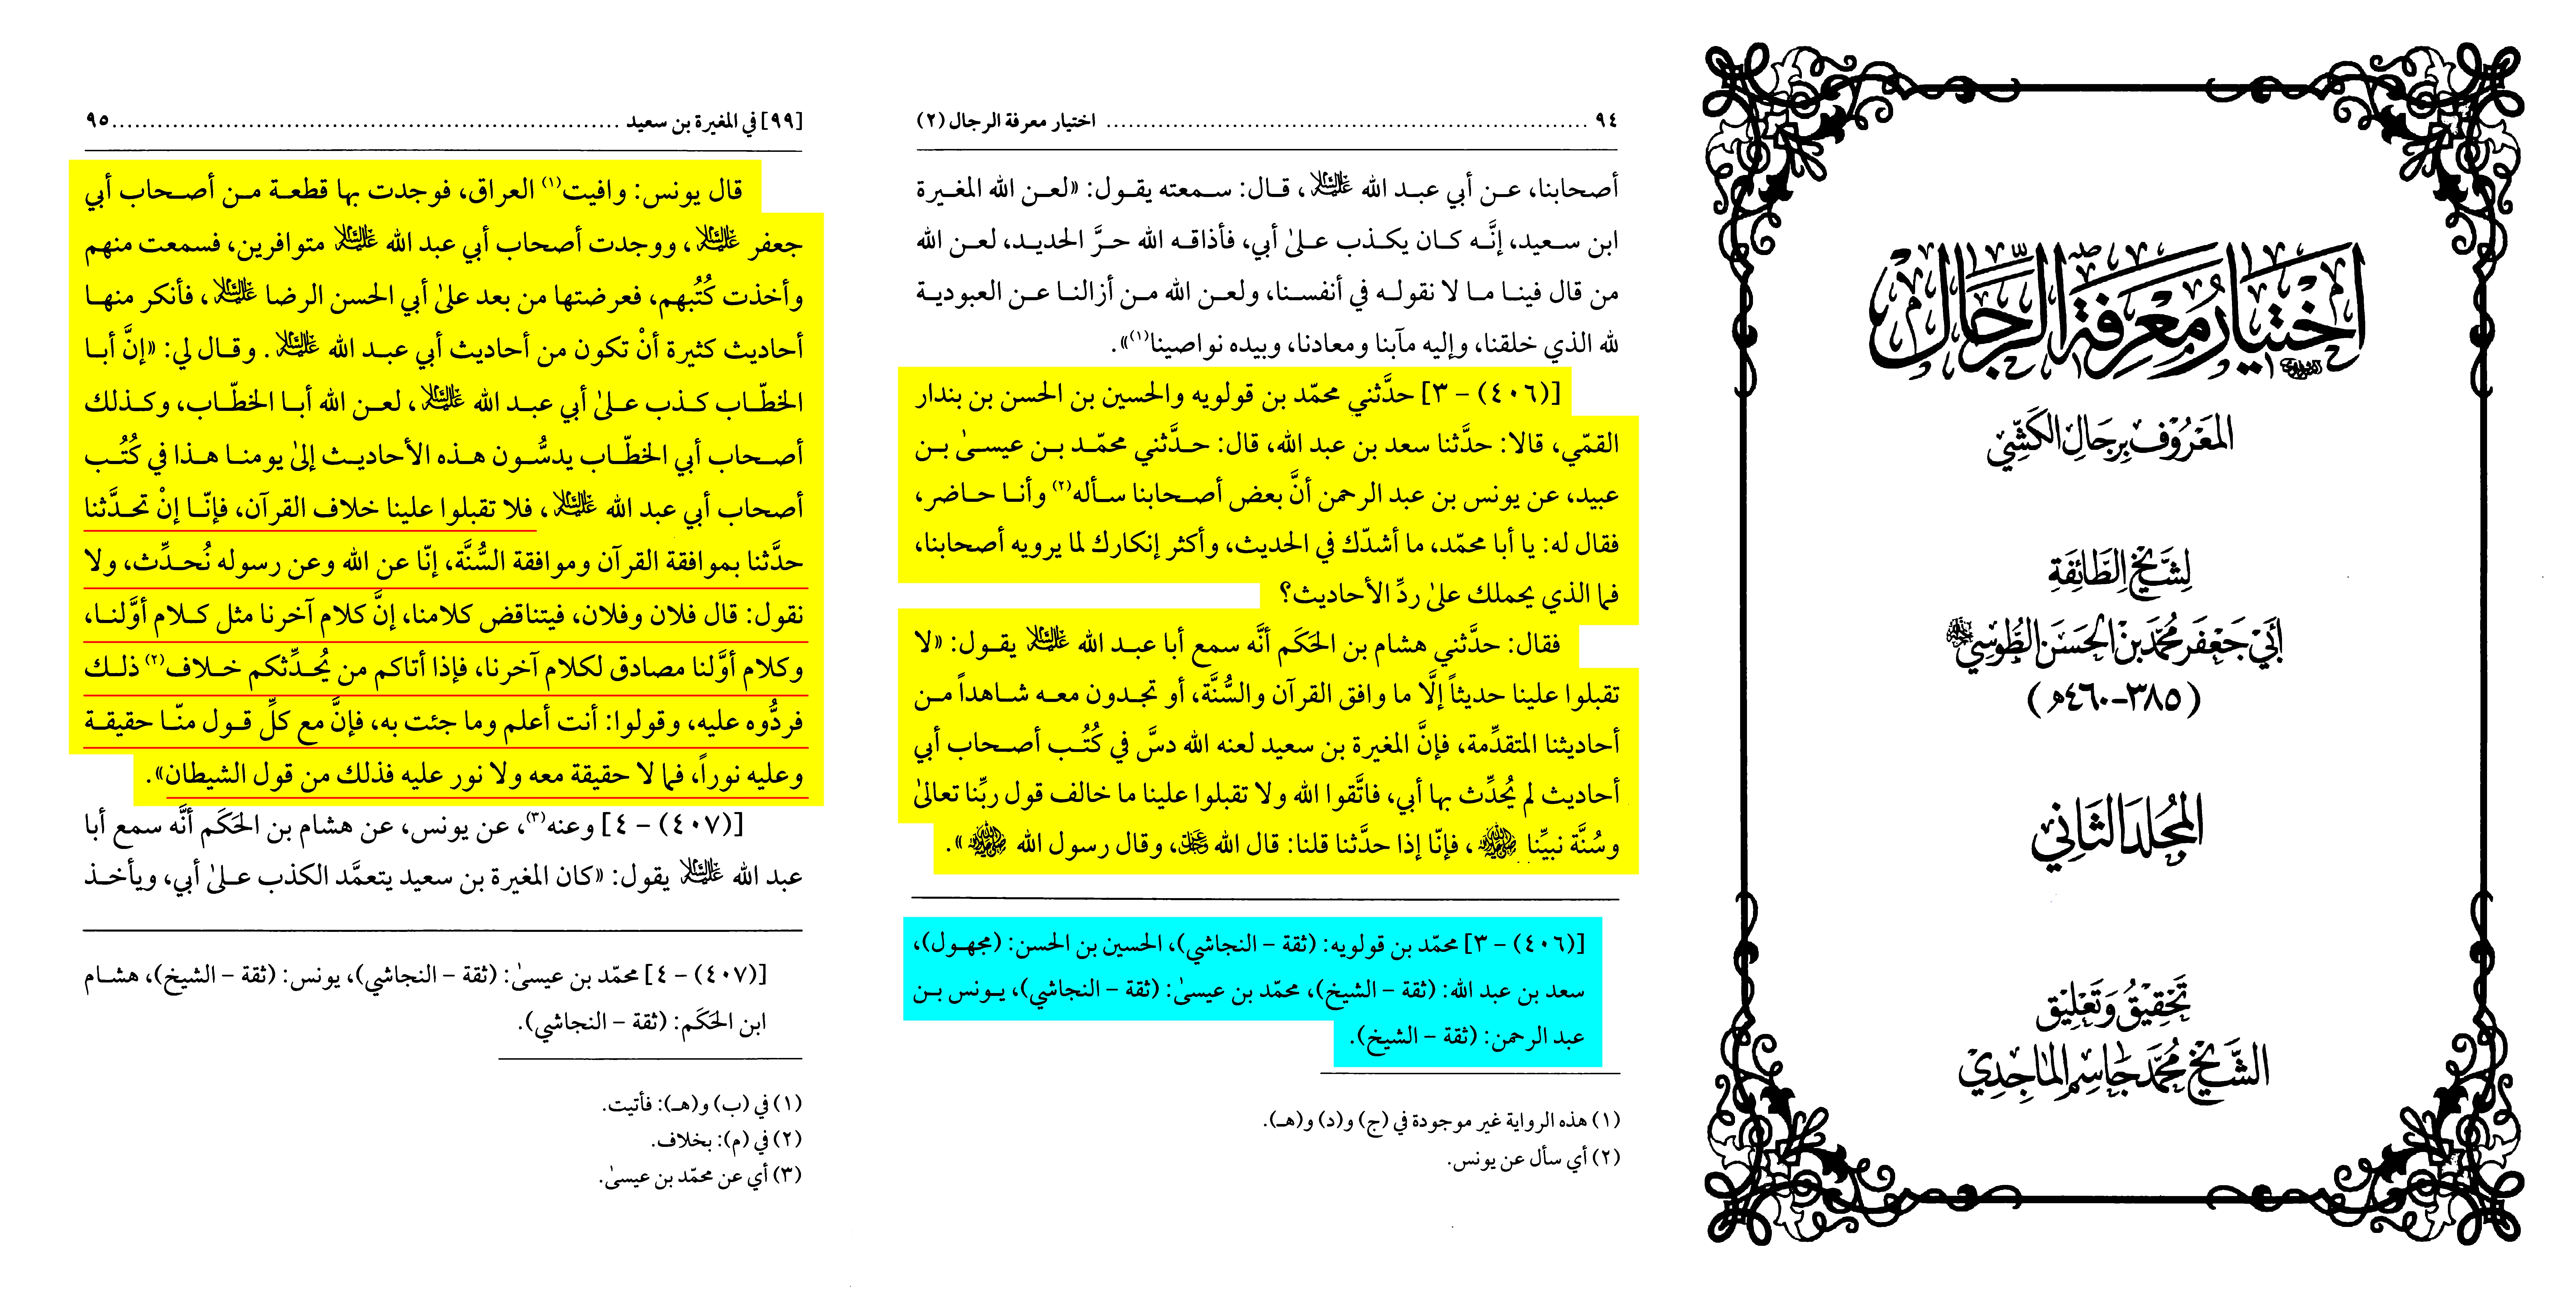 اختيار معرفة الرجال
المعروف برجال الكشّي
لشيخ الطائفة
أبي جعفر محمد بن الحسن الطوسي
(٣٨٥-٤٦٠هـ)
المجلد الثاني
تحقيق وتعليق
الشيخ محمد جاسم الماجدي
٩٤ ........ اختيار معرفة الرجال (٢)
أصحابنا، عن أبي عبد الله عليه السلام، قال: سمعته يقول: «لعن الله المغيرة
ابن سعيد، إنَّه كان يكذب علىٰ أبي، فأذاقه الله حرَّ الحديد، لعن الله
من قال فينا ما لا نقوله في أنفسنا، ولعن الله من أزالنا عن العبودية
لله الذي خلقنا، وإليه مآبنا ومعادنا، وبيده نواصينا(١)».
[(٤٠٦) – ٣] حدَّثني محمّد بن قولويه والحسين بن الحسن بن بندار
القمّي، قالا: حدَّثنا سعد بن عبد الله، قال: حدَّثني محمّد بن عيسىٰ بن
عبيد، عن يونس بن عبد الرحمن أنَّ بعض أصحابنا سأله(٢) وأنا حاضر،
فقال له: يا أبا محمّد، ما أشدّك في الحديث، وأكثر إنكارك لما يرويه أصحابنا،
فما الذي يحملك علىٰ ردِّ الأحاديث؟
فقال: حدَّثني هشام بن الحَكَم أنَّه سمع أبا عبد الله عليه السلام يقول: «لا
تقبلوا علينا حديثاً إلَّا ما وافق القرآن والسُّنَّة، أو تجدون معه شاهداً من
أحاديثنا المتقدِّمة، فإنَّ المغيرة بن سعيد لعنه الله دسَّ في كُتُب أصحاب أبي
أحاديث لم يُحدِّث بها أبي، فاتَّقوا الله ولا تقبلوا علينا ما خالف قول ربِّنا تعالىٰ
وسُنَّة نبيِّنا ﷺ، فإنّا إذا حدَّثنا قلنا: قال الله عز وجل، وقال رسول الله ﷺ».
[(٤٠٦) – ٣] محمّد بن قولويه: (ثقة – النجاشي)، الحسين بن الحسن: (مجهول)،
سعد بن عبد الله: (ثقة – الشيخ)، محمّد بن عيسىٰ: (ثقة – النجاشي)، يونس بن
عبد الرحمن: (ثقة – الشيخ).
(١) هذه الرواية غير موجودة في (ج) و(د) و(هـ).
(٢) أي سأل عن يونس.
[٩٩] في المغيرة بن سعيد ........ ٩٥
قال يونس: وافيت(١) العراق، فوجدت بها قطعة من أصحاب أبي
جعفر عليه السلام، ووجدت أصحاب أبي عبد الله عليه السلام متوافرين، فسمعت منهم
وأخذت كُتُبهم، فعرضتها من بعد علىٰ أبي الحسن الرضا عليه السلام، فأنكر منها
أحاديث كثيرة أنْ تكون من أحاديث أبي عبد الله عليه السلام. وقال لي: «إنَّ أبا
الخطّاب كذب علىٰ أبي عبد الله عليه السلام، لعن الله أبا الخطّاب، وكذلك
أصحاب أبي الخطّاب يدسُّون هذه الأحاديث إلىٰ يومنا هذا في كُتُب
أصحاب أبي عبد الله عليه السلام، فلا تقبلوا علينا خلاف القرآن، فإنّا إنْ تحدَّثنا
حدَّثنا بموافقة القرآن وموافقة السُّنَّة، إنّا عن الله وعن رسوله نُحدِّث، ولا
نقول: قال فلان وفلان، فيتناقض كلامنا، إنَّ كلام آخرنا مثل كلام أوَّلنا،
وكلام أوَّلنا مصادق لكلام آخرنا، فإذا أتاكم من يُحدِّثكم خلاف(٢) ذلك
فردُّوه عليه، وقولوا: أنت أعلم وما جئت به، فإنَّ مع كلِّ قول منّا حقيقة
وعليه نوراً، فما لا حقيقة معه ولا نور عليه فذلك من قول الشيطان».
[(٤٠٧) – ٤] وعنه(٣)، عن يونس، عن هشام بن الحَكَم أنَّه سمع أبا
عبد الله عليه السلام يقول: «كان المغيرة بن سعيد يتعمَّد الكذب علىٰ أبي، ويأخذ
[(٤٠٧) – ٤] محمّد بن عيسىٰ: (ثقة – النجاشي)، يونس: (ثقة – الشيخ)، هشام
ابن الحَكَم: (ثقة – النجاشي).
(١) في (ب) و(هـ): فأتيت.
(٢) في (م): بخلاف.
(٣) أي عن محمّد بن عيسىٰ.